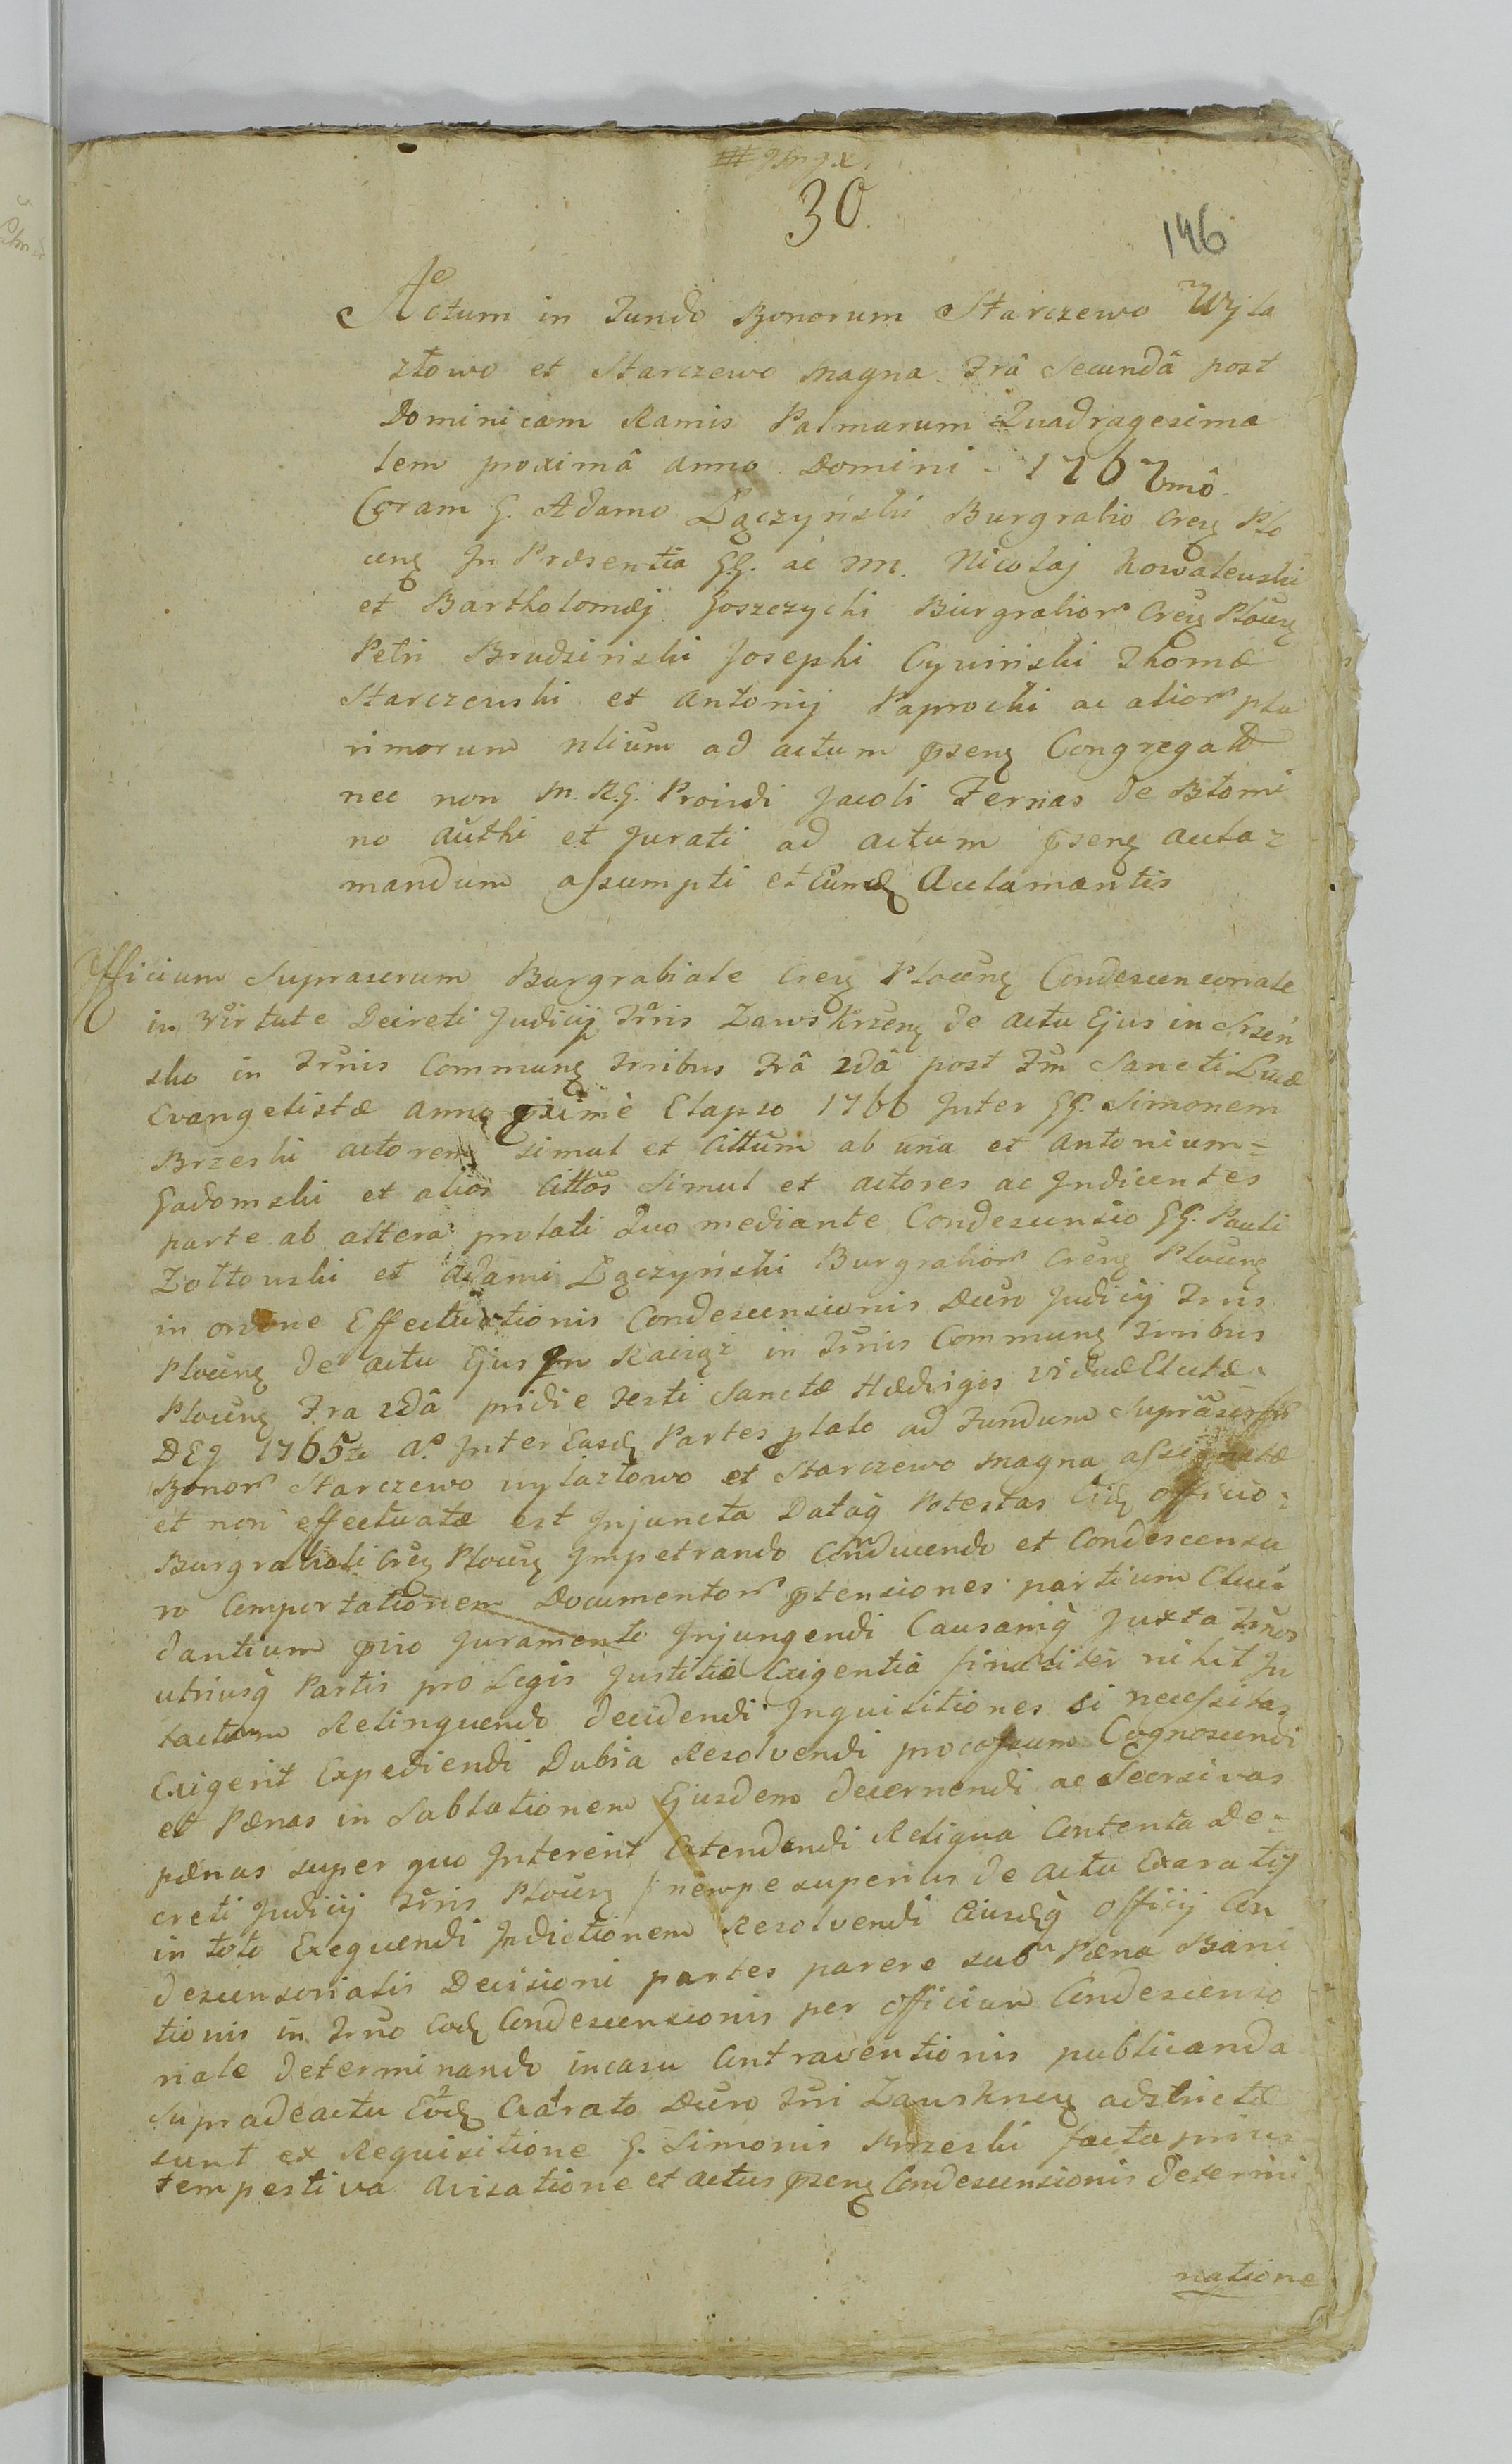 30.
146
Actum in Fundo Bonorum Starczewo Wyla
ztowo et Starczewo Magna Frâ Secundâ post
Dominicam Ramis Palmarum Quadragesima
lem proximâ anno Domini 1767mô.
Coram G. Adamo Łączyński Burgrabio Creŋ Plo
ceŋ In Præsentia GG. ac M. Nicolaj Kowalewski
et Bartholomæj Goszczycki Burgrabior Creŋ Ploceŋ
Petri Brudziński Josephi Cywiński Thomæ
Starczewski et Antonij Paprocki ac alior plu
rimorum nlium ad actum pseŋ Congregat
nec non M. R. G. Proindi Jacobi Fernas de Błomi
no Authi et Jurati ad actum pseŋ accla=
mandum assumpti et Eund Acclamantis
Officium Suprascrum Burgrabiale Creŋ Ploceŋ Condescensoriale
in Virtute Decreti Judicij Trris Zawskrzeŋ de actu Ejus in Szreń
sko in Trnis Communŋ Trribus Frâ 2dâ post Fm Sancti Lucæ
Evangelistæ anno pximè Elapso 1766 Inter GG. Simonem
Brzeski actorem simul et Cittum ab una et Antonium=
Gadomski et alios Cittos Simul et actores ac Indicentes
parte ab altera prolati Quo mediante Condescensio GG. Pauli
Zołtowski et Adami Łączyński Burgrabior Creŋ Ploceŋ
in ordine Effectuationis Condescensionis Decro Judicij Trris
Ploceŋ de actu Ejus In Raciąż in Trnis Communŋ Trribus
Ploceŋ Fra 2dâ pridie Festi Sanctæ Hædvigis Viduæ Electæ
DEI 1765to Ao. Inter Easd Partes plato ad Fundum Suprascrptor
Bonor Starczewo wylaztowo et Starczewo Magna assignatæ
et non effectuatæ est Injuncta Dataq Potestas Eid officio
Burgrabiali Creŋ Ploceŋ Impetrando Conducendo et Condescensu
ro Comportationem Documentor ptensiones partium Eluci
dantium pvio Juramento Injungendi Causamq Juxta Trnos
utriusq Partis pro Legis Justitiæ Exigentia finaliter nihil In
tactum Relinquendo decidendi Inquisitiones si necessitas
Exigerit Expediendi Dubia Resolvendi processum Cognoscendi
et Pænas in Sublationem Ejusdem decernendi ac Recrsivas
pænas super quo Intererit Extendendi Reliqua Contenta De=
creti Judicij Trris Ploceŋ nempe superius de actu Exaratij
in toto Exequendi Indictionem Resolvendi Ejusdq officij Con
descensorialis Decisioni partes parere sub Pæna Bani
tionis in Trno Eod Condescensionis per officium Condescenso
riale determinando in casu Contraventionis publicanda
Supra de actu Eod Exarato Decro Trri Zawskrzeŋ adstrictæ
sunt ex Requisitione G. Simonis Brzeski facta prius
tempestiva Avisatione et actus pseŋ Condescensionis determi
natione